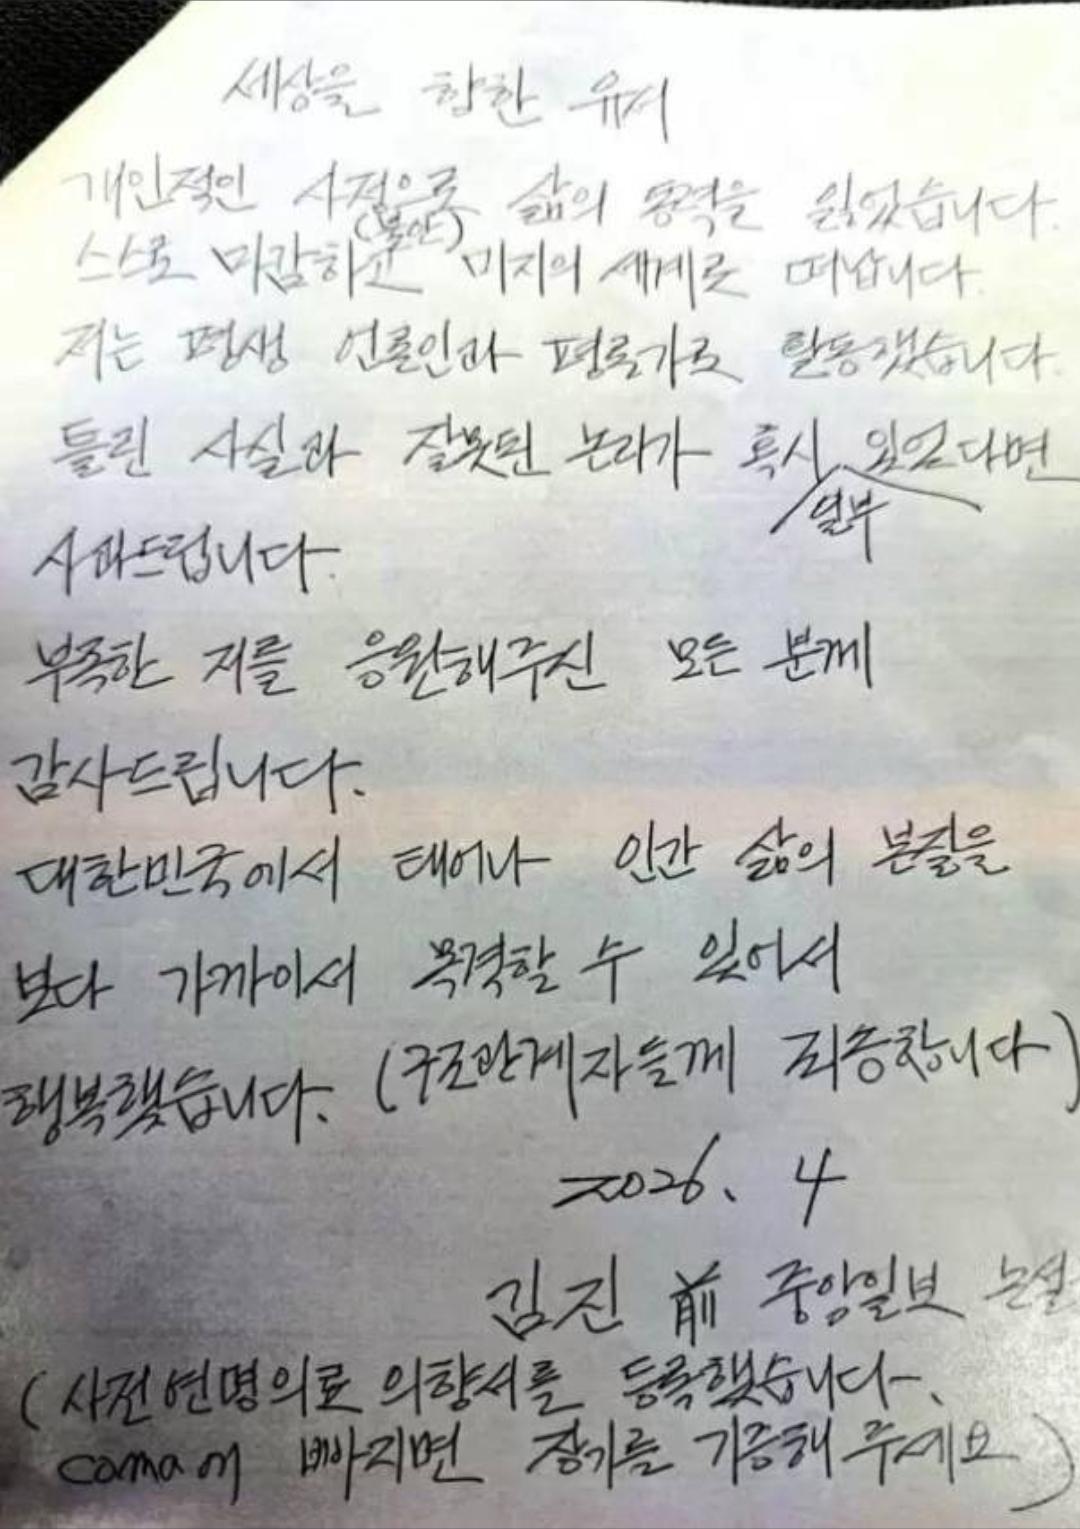 세상을 향한 유서
개인적인 사정으로 삶의 동력을 잃었습니다.
(불안)
스스로 마감하고 미지의 세계로 떠납니다.
저는 평생 언론인과 평론가로 활동했습니다.
틀린 사실과 잘못된 논리가 혹시 있었다면
일부
사과드립니다.
부족한 저를 응원해주신 모든 분께
감사드립니다.
대한민국에서 태어나 인간 삶의 본질을
보다 가까이서 목격할 수 있어서
행복했습니다. (구조관계자들께 죄송합니다)
2026. 4
김진 前 중앙일보 논설
(사전연명의료 의향서를 등록했습니다.
coma에 빠지면 장기를 기증해 주세요)